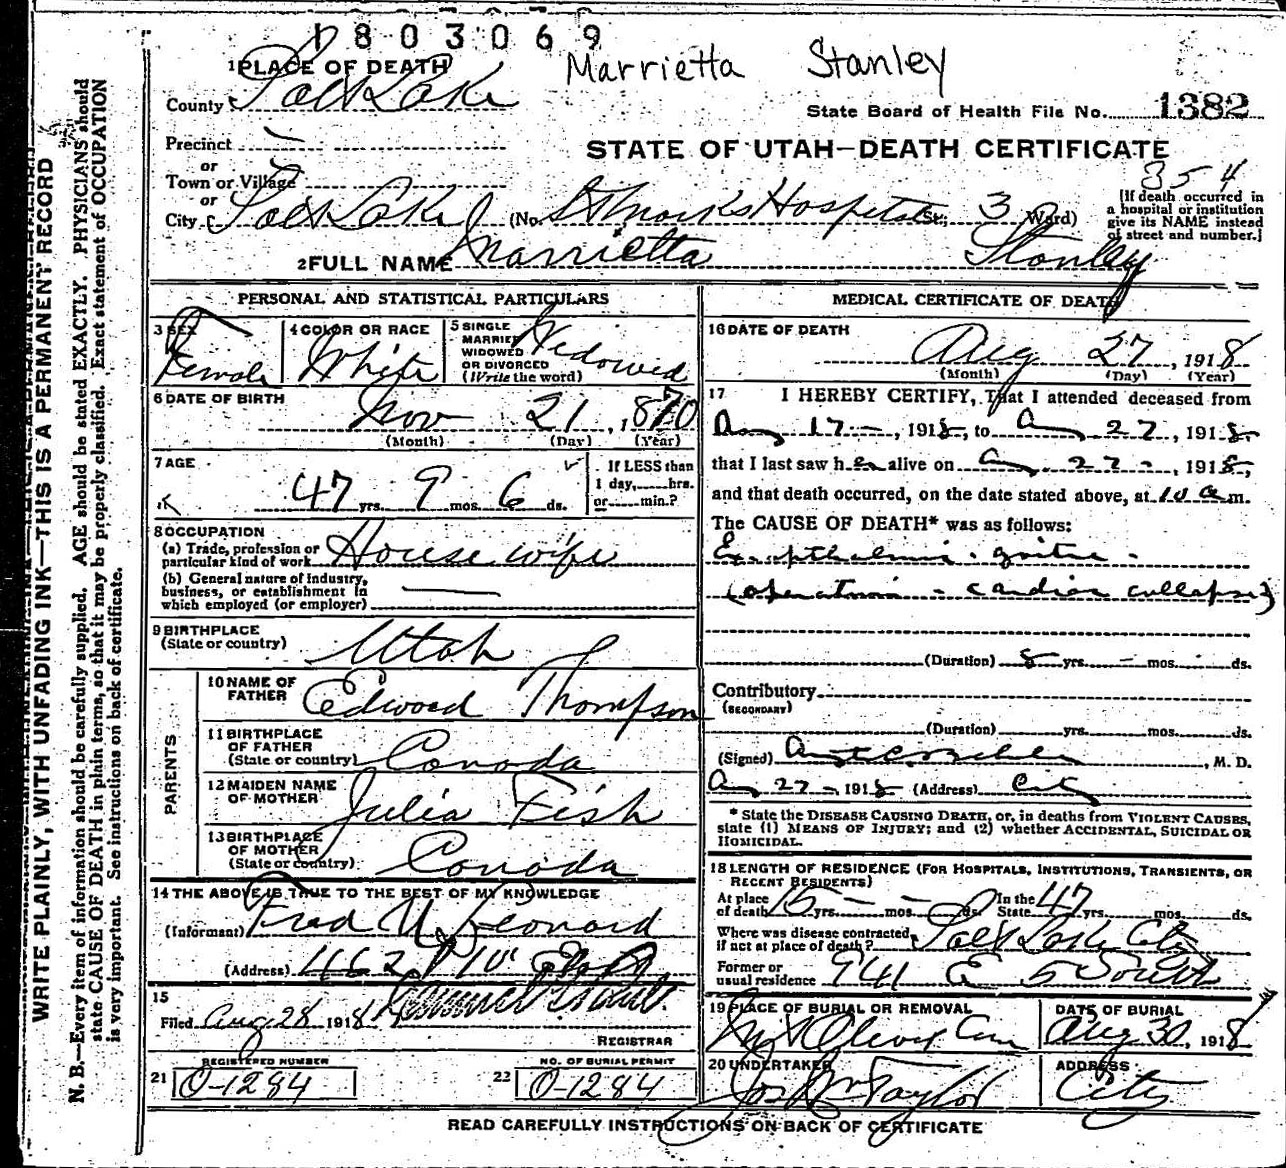 1803069
Marrietta Stanley
1 PLACE OF DEATH
County Salt Lake
State Board of Health File No. 1382
Precinct —
STATE OF UTAH—DEATH CERTIFICATE
or
Town or Village
354
or
City Salt Lake (No. St Marks Hospital St; 3 Ward)
[If death occurred in
a hospital or institution
give its NAME instead
of street and number.]
2 FULL NAME Marrietta Stanley
PERSONAL AND STATISTICAL PARTICULARS
3 SEX
Female
4 COLOR OR RACE
White
5 SINGLE
MARRIED
WIDOWED
OR DIVORCED
(Write the word)
Widowed
6 DATE OF BIRTH
Nov 21, 1870
(Month) (Day) (Year)
7 AGE
47 yrs. 9 mos. 6 ds.
If LESS than
1 day, hrs.
or min.?
8 OCCUPATION
(a) Trade, profession or
particular kind of work House wife
(b) General nature of industry,
business, or establishment in
which employed (or employer) —
9 BIRTHPLACE
(State or country) Utah
PARENTS
10 NAME OF
FATHER Edward Thompson
11 BIRTHPLACE
OF FATHER
(State or country) Canada
12 MAIDEN NAME
OF MOTHER Julia Fish
13 BIRTHPLACE
OF MOTHER
(State or country) Canada
14 THE ABOVE IS TRUE TO THE BEST OF MY KNOWLEDGE
(Informant) Fred U. Leonard
(Address) 462
15
Filed Aug 28 1918
REGISTRAR
REGISTERED NUMBER
21 0-1284
NO. OF BURIAL PERMIT
22 0-1284
MEDICAL CERTIFICATE OF DEATH
16 DATE OF DEATH
Aug 27, 1918
(Month) (Day) (Year)
17 I HEREBY CERTIFY, That I attended deceased from
Aug 17 —, 1918, to Aug 27, 1918
that I last saw her alive on Aug 27 -, 1918,
and that death occurred, on the date stated above, at 10 a m.
The CAUSE OF DEATH* was as follows:
Exopthalmic goitre -
(operation - cardiac collapse)
(Duration) 8 yrs. - mos. ds.
Contributory
(SECONDARY)
(Duration) yrs. mos. ds.
(Signed) , M. D.
Aug 27 - 1918 (Address) City
* State the DISEASE CAUSING DEATH, or, in deaths from VIOLENT CAUSES,
state (1) MEANS OF INJURY; and (2) whether ACCIDENTAL, SUICIDAL OR
HOMICIDAL.
18 LENGTH OF RESIDENCE (FOR HOSPITALS, INSTITUTIONS, TRANSIENTS, OR
RECENT RESIDENTS)
At place
of death 15 yrs. — mos. — ds. In the State 47 yrs. mos. ds.
Where was disease contracted,
if not at place of death? Salt Lake City
Former or
usual residence 941 E 5 South
19 PLACE OF BURIAL OR REMOVAL
Mt Olivet Cem
DATE OF BURIAL
Aug 30, 1918
20 UNDERTAKER
Jos Wm Taylor
ADDRESS
City
READ CAREFULLY INSTRUCTIONS ON BACK OF CERTIFICATE
WRITE PLAINLY, WITH UNFADING INK—THIS IS A PERMANENT RECORD
N. B.—Every item of information should be carefully supplied. AGE should be stated EXACTLY. PHYSICIANS should
state CAUSE OF DEATH in plain terms, so that it may be properly classified. Exact statement of OCCUPATION
is very important. See instructions on back of certificate.